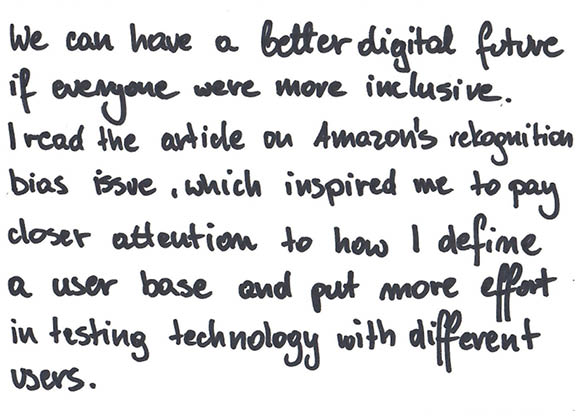 We can have a better digital future
if everyone were more inclusive.
I read the article on Amazon's rekognition
bias issue, which inspired me to pay
closer attention to how I define
a user base and put more effort
in testing technology with different
users.